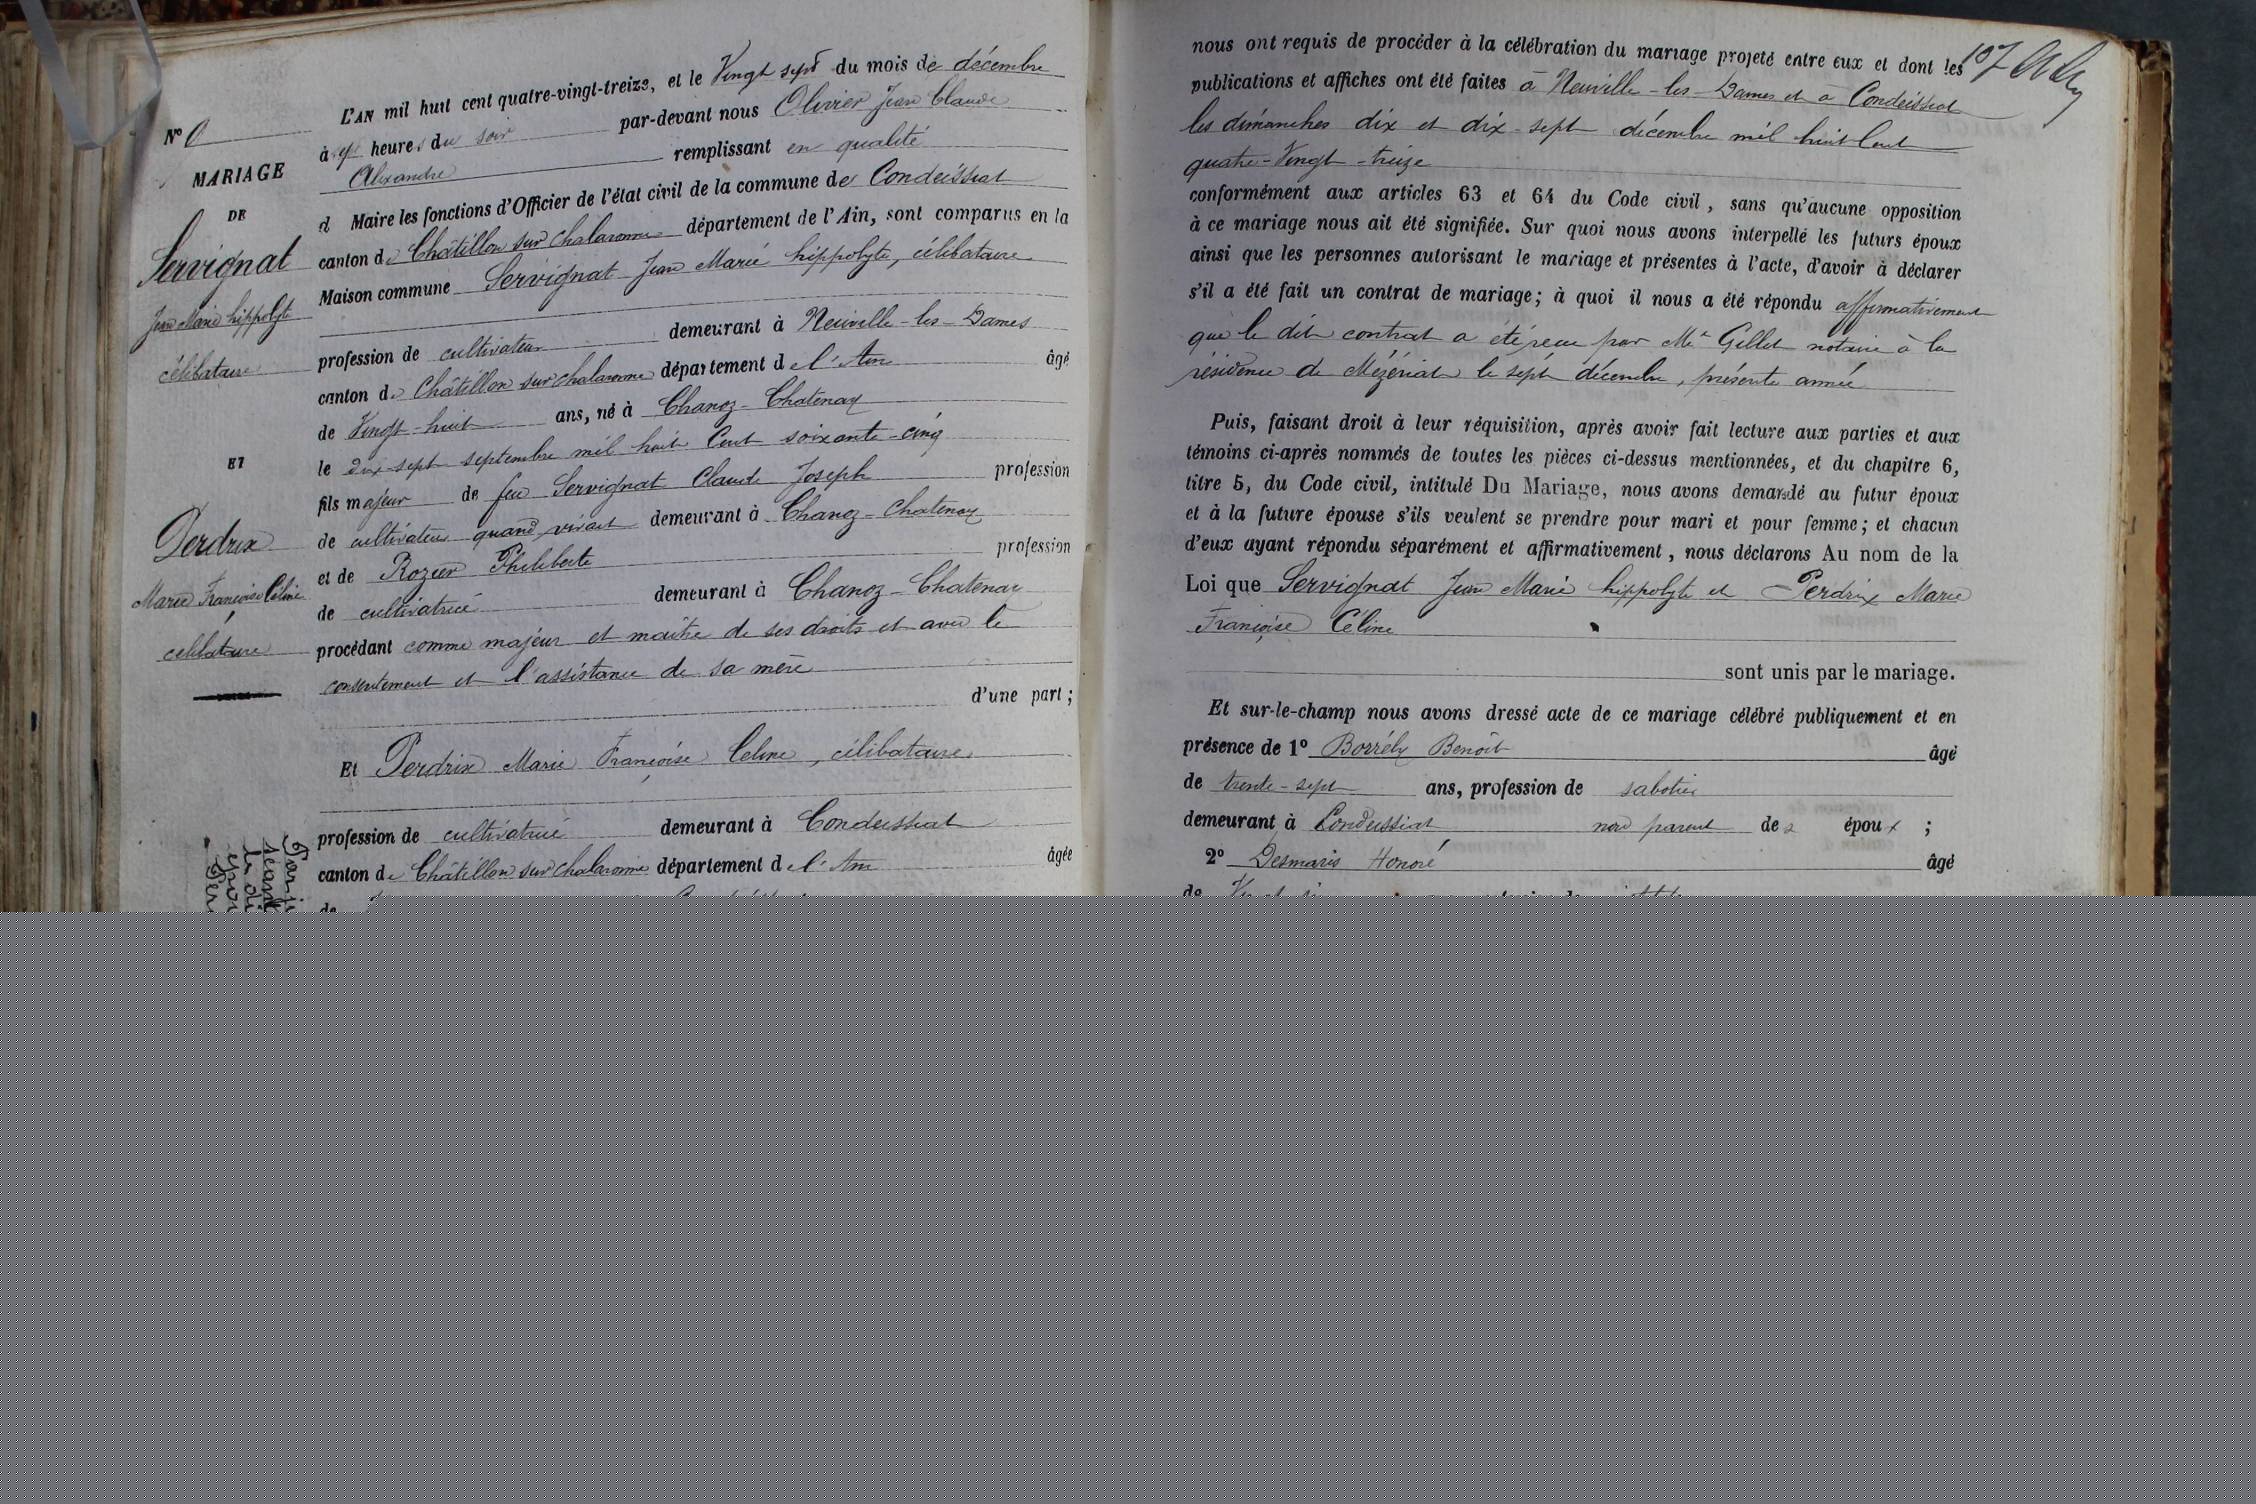 L'AN mil huit cent quatre-vingt-treize, et le Vingt sept du mois de décembre
à sept heures du soir par-devant nous Olivier Jean Claude
Alexandre remplissant en qualité
d Maire les fonctions d'Officier de l'état civil de la commune de Condeissiat
canton de Châtillon sur chalaronne département de l'Ain, sont comparus en la
Maison commune Servignat Jean Marie hippolyte, célibataire
profession de cultivateur demeurant à Neuville-les-Dames
canton de Châtillon sur chalaronne département de l'Ain âgé
de Vingt-huit ans, né à Chanoz-Chatenay
le dix-sept septembre mil huit Cent soixante-cinq
fils majeur de feu Servignat Claude Joseph profession
de cultivateur quand vivait demeurant à Chanoz-Chatenay
et de Rozier Philiberte profession
de cultivatrice demeurant à Chanoz-Chatenay
procédant comme majeur et maître de ses droits et avec le
consentement et l'assistance de sa mère
d'une part ;
Et Perdrix Marie Françoise Celine, célibataire
profession de cultivatrice demeurant à Condeissiat
canton de Châtillon sur chalaronne département de l'Ain âgée
de
N°
MARIAGE
DE
Servignat
Jean Marie hippolyte
célibataire
ET
Perdrix
Marie Françoise Céline
célibataire
nous ont requis de procéder à la célébration du mariage projeté entre eux et dont les
107
publications et affiches ont été faites à Neuville-les-Dames et à Condeissiat
les dimanches dix et dix-sept décembre mil huit Cent
quatre-Vingt-treize
conformément aux articles 63 et 64 du Code civil, sans qu'aucune opposition
à ce mariage nous ait été signifiée. Sur quoi nous avons interpellé les futurs époux
ainsi que les personnes autorisant le mariage et présentes à l'acte, d'avoir à déclarer
s'il a été fait un contrat de mariage; à quoi il nous a été répondu affirmativement
que le dit contrat a été reçu par Me Gillet notaire à la
résidence de Mézériat le sept décembre, présente année
Puis, faisant droit à leur réquisition, après avoir fait lecture aux parties et aux
témoins ci-après nommés de toutes les pièces ci-dessus mentionnées, et du chapitre 6,
titre 5, du Code civil, intitulé Du Mariage, nous avons demandé au futur époux
et à la future épouse s'ils veulent se prendre pour mari et pour femme; et chacun
d'eux ayant répondu séparément et affirmativement, nous déclarons Au nom de la
Loi que Servignat Jean Marie hippolyte et Perdrix Marie
Françoise Céline
sont unis par le mariage.
Et sur-le-champ nous avons dressé acte de ce mariage célébré publiquement et en
présence de 1° Borrély Benoît âgé
de trente-sept ans, profession de sabotier
demeurant à Condeissiat non parent des époux ;
2° Desmaris Honoré âgé
de